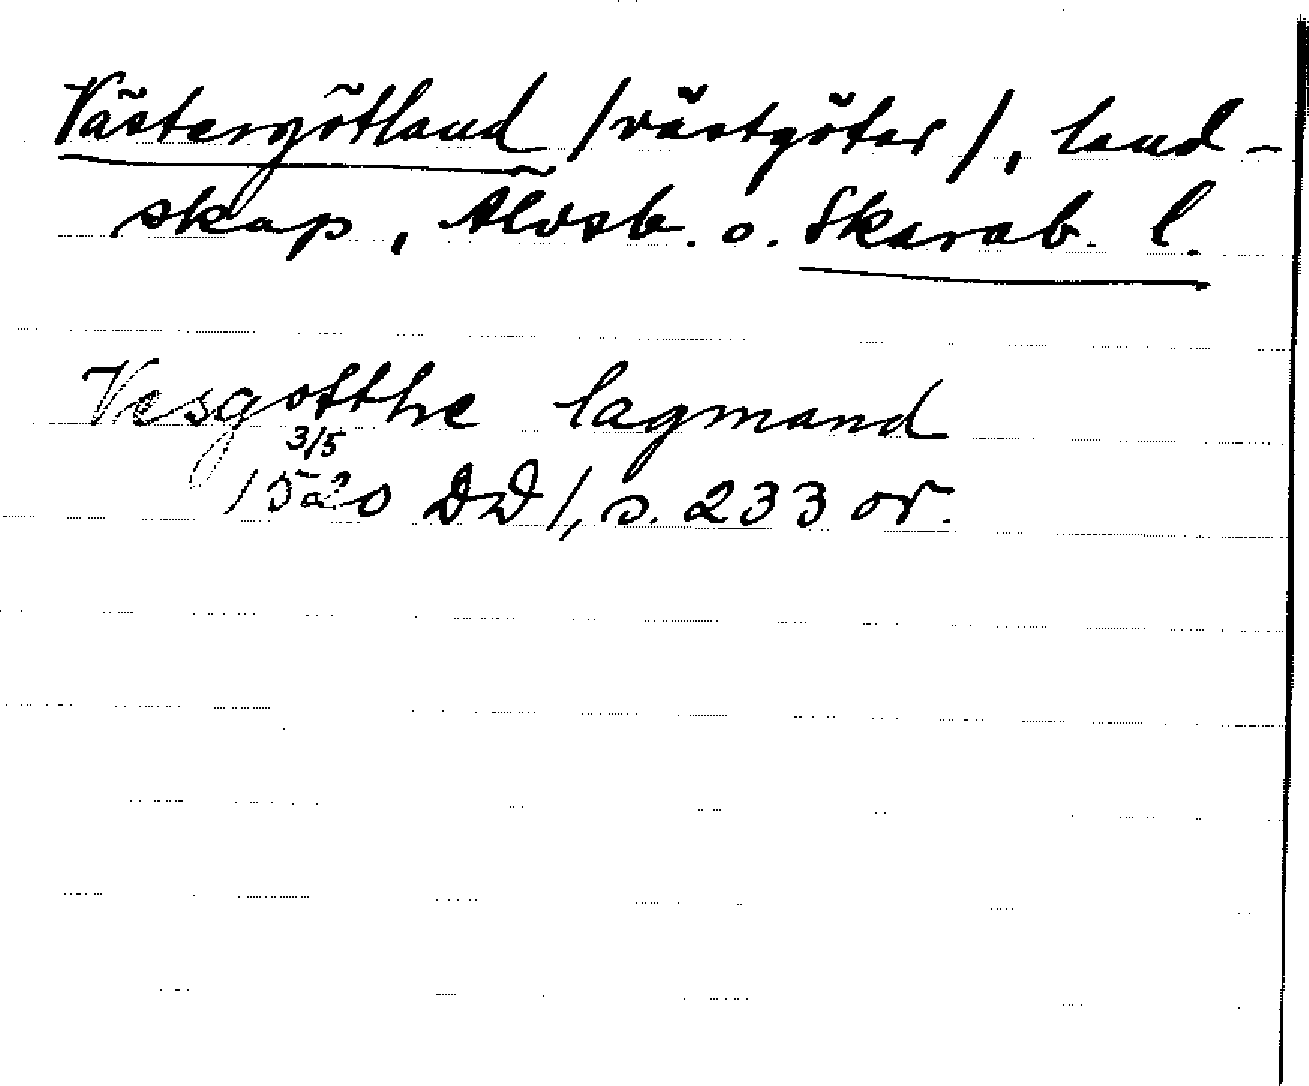 Västergötland /västgötar/, land-
skap, Älvsb. o. Skarab. l.
Vesgotthe lagmand
3/5
1520 DD 1, s. 233 or.